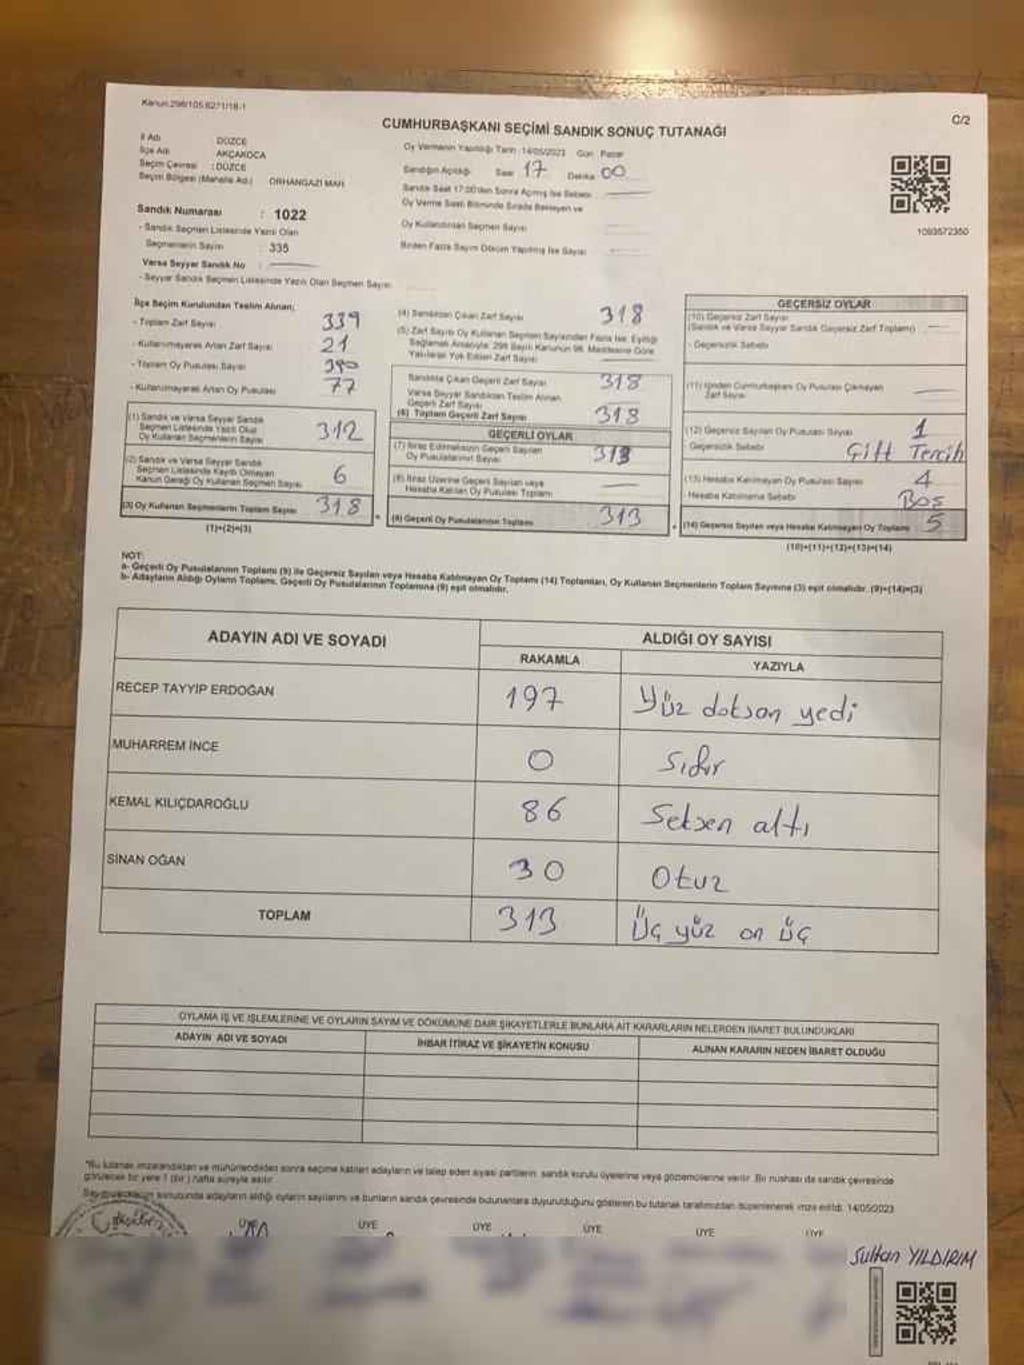 Kanun:298/105.6271/18-1
C/2
CUMHURBAŞKANI SEÇİMİ SANDIK SONUÇ TUTANAĞI
İl Adı DÜZCE
İlçe Adı AKÇAKOCA
Seçim Çevresi : DÜZCE
Seçim Bölgesi (Mahalle Ad.) ORHANGAZİ MAH.
Oy Vermenin Yapıldığı Tarih :14/05/2023 Gün : Pazar
Sandığın Açıldığı Saat 17 Dakika 00
Sandık Saat 17:00'den Sonra Açılmış İse Sebebi
Oy Verme Saati Bitiminde Sırada Bekleyen ve
Oy Kullandırılan Seçmen Sayısı
Birden Fazla Sayım Döküm Yapılmış İse Sayısı
1093572350
Sandık Numarası : 1022
- Sandık Seçmen Listesinde Yazılı Olan
Seçmenlerin Sayısı : 335
Varsa Seyyar Sandık No :
- Seyyar Sandık Seçmen Listesinde Yazılı Olan Seçmen Sayısı
İlçe Seçim Kurulundan Teslim Alınan;
- Toplam Zarf Sayısı 339
- Kullanılmayarak Artan Zarf Sayısı 21
- Toplam Oy Pusulası Sayısı 390
- Kullanılmayarak Artan Oy Pusulası 77
(1) Sandık ve Varsa Seyyar Sandık
Seçmen Listesinde Yazılı Olup
Oy Kullanan Seçmenlerin Sayısı 312
(2) Sandık ve Varsa Seyyar Sandık
Seçmen Listesinde Kayıtlı Olmayan
Kanun Gereği Oy Kullanan Seçmen Sayısı 6
(3) Oy Kullanan Seçmenlerin Toplam Sayısı 318
(1)+(2)=(3)
(4) Sandıktan Çıkan Zarf Sayısı 318
(5) Zarf Sayısı Oy Kullanan Seçmen Sayısından Fazla İse, Eşitliği
Sağlamak Amacıyla; 298 Sayılı Kanunun 98. Maddesine Göre
Yakılarak Yok Edilen Zarf Sayısı
Sandıkta Çıkan Geçerli Zarf Sayısı 318
Varsa Seyyar Sandıktan Teslim Alınan
Geçerli Zarf Sayısı
(6) Toplam Geçerli Zarf Sayısı 318
GEÇERLİ OYLAR
(7) İtiraz Edilmeksizin Geçerli Sayılan
Oy Pusulalarının Sayısı 313
(8) İtiraz Üzerine Geçerli Sayılan veya
Hesaba Katılan Oy Pusulası Toplamı
(9) Geçerli Oy Pusulalarının Toplamı 313
GEÇERSİZ OYLAR
(10) Geçersiz Zarf Sayısı
(Sandık ve Varsa Seyyar Sandık Geçersiz Zarf Toplamı)
- Geçersizlik Sebebi
(11) İçinden Cumhurbaşkanı Oy Pusulası Çıkmayan
Zarf Sayısı
(12) Geçersiz Sayılan Oy Pusulası Sayısı 1
Geçersizlik Sebebi Çift Tercih
(13) Hesaba Katılmayan Oy Pusulası Sayısı 4
- Hesaba Katılmama Sebebi Boş
(14) Geçersiz Sayılan veya Hesaba Katılmayan Oy Toplamı 5
(10)+(11)+(12)+(13)=(14)
NOT:
a- Geçerli Oy Pusulalarının Toplamı (9) ile Geçersiz Sayılan veya Hesaba Katılmayan Oy Toplamı (14) Toplamları, Oy Kullanan Seçmenlerin Toplam Sayısına (3) eşit olmalıdır. (9)+(14)=(3)
b- Adayların Aldığı Oyların Toplamı, Geçerli Oy Pusulalarının Toplamına (9) eşit olmalıdır.
ADAYIN ADI VE SOYADI
ALDIĞI OY SAYISI
RAKAMLA YAZIYLA
RECEP TAYYİP ERDOĞAN 197 Yüz doksan yedi
MUHARREM İNCE 0 Sıfır
KEMAL KILIÇDAROĞLU 86 Seksen altı
SİNAN OĞAN 30 Otuz
TOPLAM 313 Üç yüz on üç
OYLAMA İŞ VE İŞLEMLERİNE VE OYLARIN SAYIM VE DÖKÜMÜNE DAİR ŞİKAYETLERLE BUNLARA AİT KARARLARIN NELERDEN İBARET BULUNDUKLARI
ADAYIN ADI VE SOYADI İHBAR İTİRAZ VE ŞİKAYETİN KONUSU ALINAN KARARIN NEDEN İBARET OLDUĞU
*Bu tutanak imzalandıktan ve mühürlendikten sonra seçime katılan adayların ve talep eden siyasi partilerin sandık kurulu üyelerine veya gözlemcilerine verilir. Bir nüshası da sandık çevresinde
görülecek bir yere 1 (bir) hafta süreyle asılır.
sonucunda adayların aldığı oyların sayılarını ve bunların sandık çevresinde bulunanlara duyurulduğunu gösteren bu tutanak tarafımızdan düzenlenerek imza edildi. 14/05/2023
ÜYE ÜYE ÜYE ÜYE ÜYE
Sultan YILDIRIM